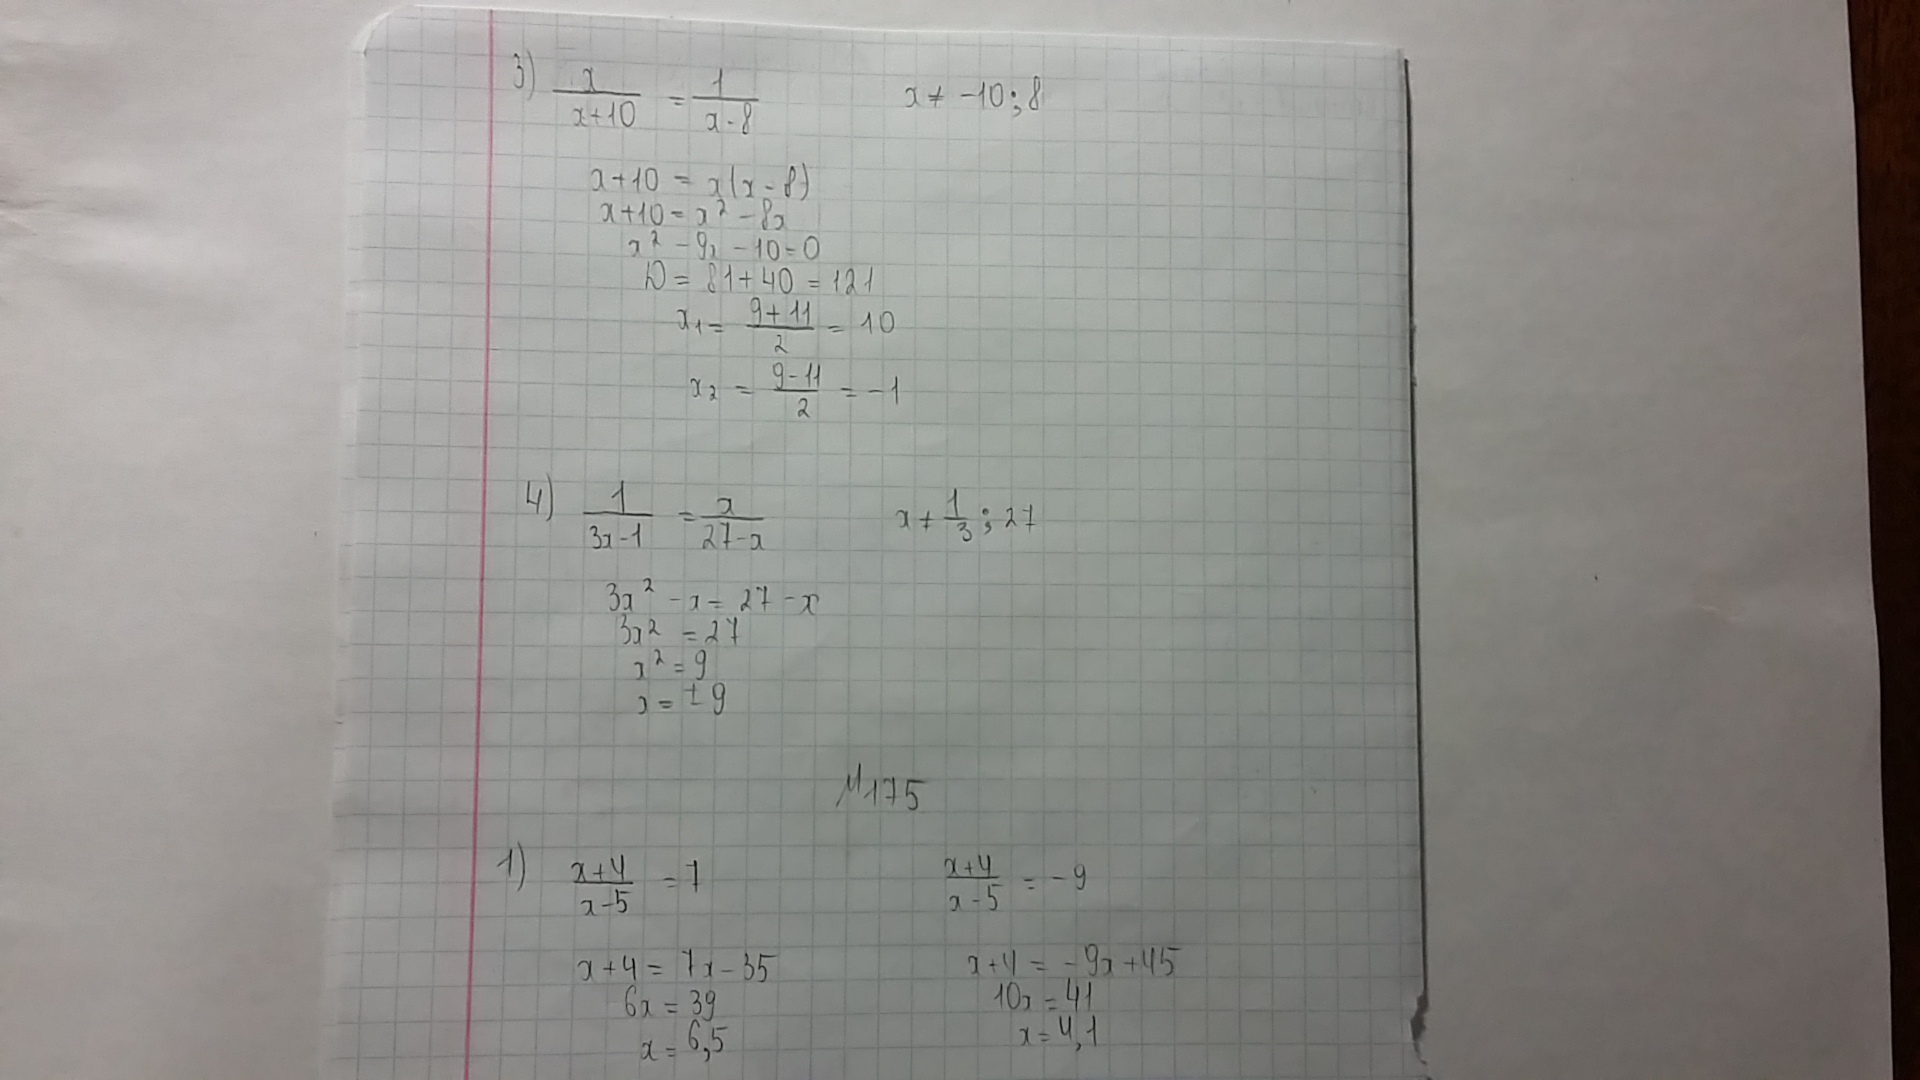 3) x/(x+10) = 1/(x-8) x ≠ -10; 8
x+10 = x(x-8)
x+10 = x² - 8x
x² - 9x - 10 = 0
D = 81+40 = 121
x₁ = (9+11)/2 = 10
x₂ = (9-11)/2 = -1
4) 1/(3x-1) = x/(27-x) x ≠ 1/3; 27
3x² - x = 27 - x
3x² = 27
x² = 9
x = ±9
№175
1) (x+4)/(x-5) = 7 (x+4)/(x-5) = -9
x+4 = 7x-35 x+4 = -9x+45
6x = 39 10x = 41
x = 6,5 x = 4,1